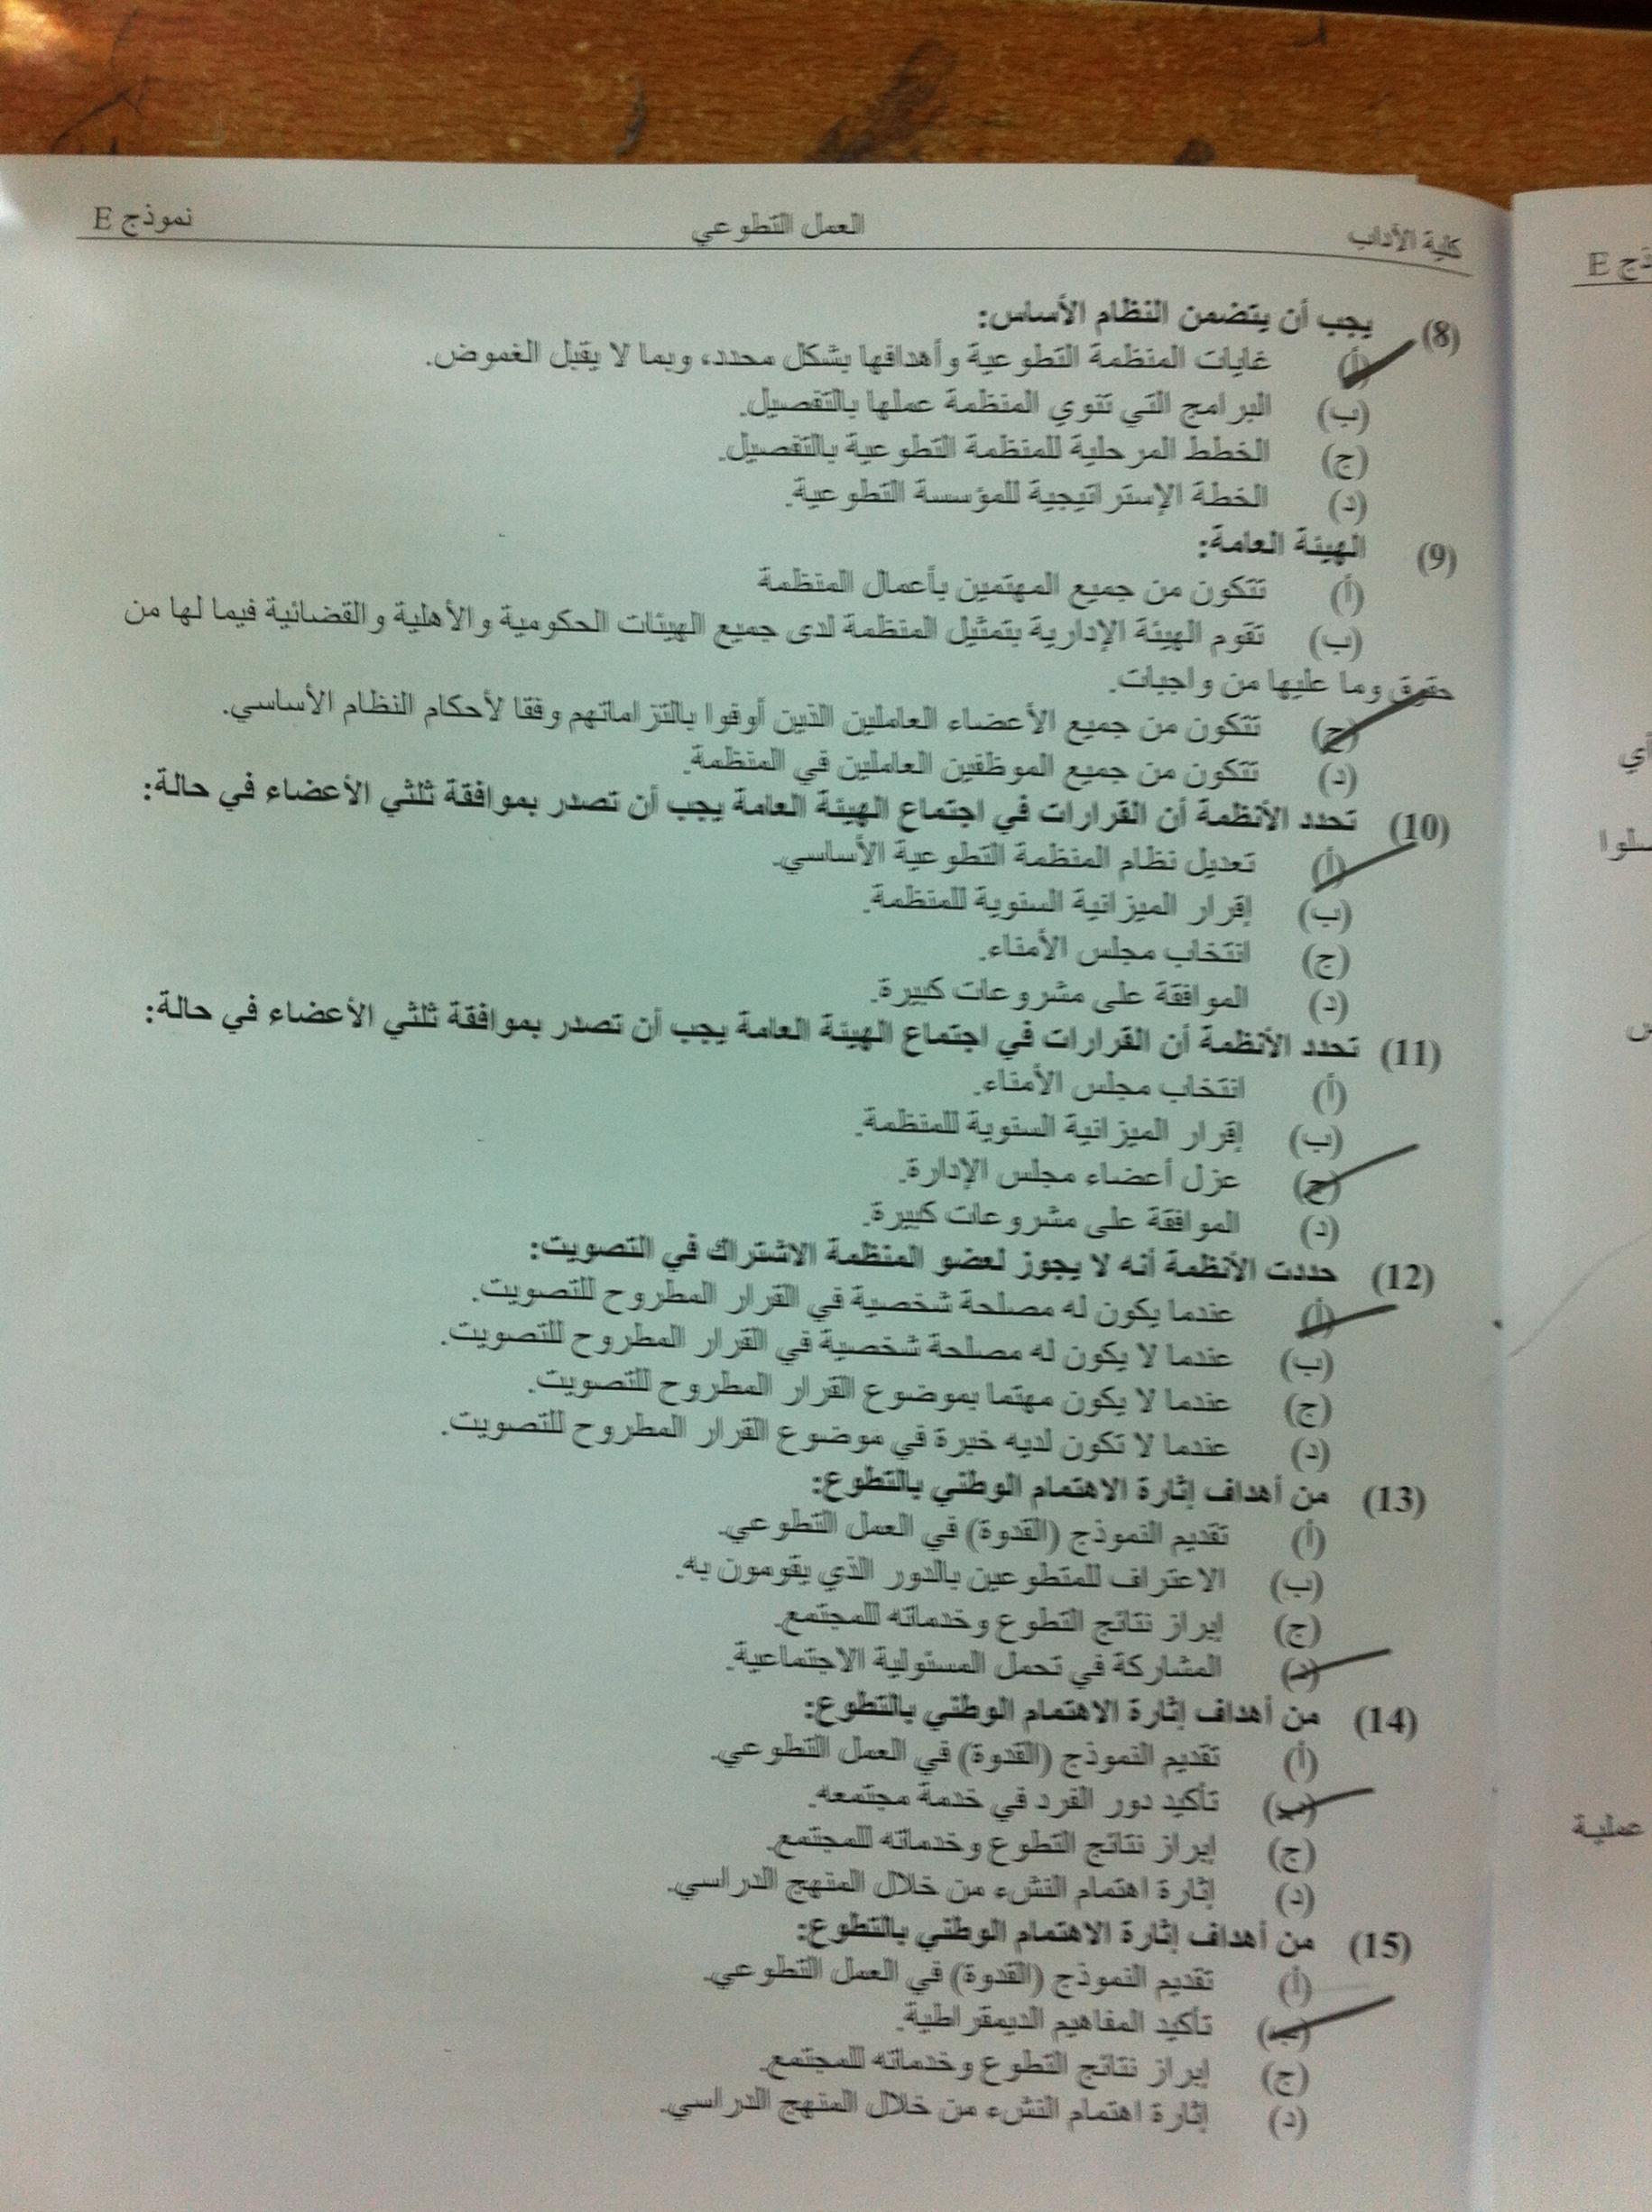 كلية الآداب العمل التطوعي نموذج E
(8) يجب أن يتضمن النظام الأساس:
(أ) غايات المنظمة التطوعية وأهدافها بشكل محدد، وبما لا يقبل الغموض.
(ب) البرامج التي تنوي المنظمة عملها بالتفصيل.
(ج) الخطط المرحلية للمنظمة التطوعية بالتفصيل.
(د) الخطة الإستراتيجية للمؤسسة التطوعية.
(9) الهيئة العامة:
(أ) تتكون من جميع المهتمين بأعمال المنظمة
(ب) تقوم الهيئة الإدارية بتمثيل المنظمة لدى جميع الهيئات الحكومية والأهلية والقضائية فيما لها من
حقوق وما عليها من واجبات.
(ج) تتكون من جميع الأعضاء العاملين الذين أوفوا بالتزاماتهم وفقا لأحكام النظام الأساسي.
(د) تتكون من جميع الموظفين العاملين في المنظمة.
(10) تحدد الأنظمة أن القرارات في اجتماع الهيئة العامة يجب أن تصدر بموافقة ثلثي الأعضاء في حالة:
(أ) تعديل نظام المنظمة التطوعية الأساسي.
(ب) إقرار الميزانية السنوية للمنظمة.
(ج) انتخاب مجلس الأمناء.
(د) الموافقة على مشروعات كبيرة.
(11) تحدد الأنظمة أن القرارات في اجتماع الهيئة العامة يجب أن تصدر بموافقة ثلثي الأعضاء في حالة:
(أ) انتخاب مجلس الأمناء.
(ب) إقرار الميزانية السنوية للمنظمة.
(ج) عزل أعضاء مجلس الإدارة.
(د) الموافقة على مشروعات كبيرة.
(12) حددت الأنظمة أنه لا يجوز لعضو المنظمة الاشتراك في التصويت:
(أ) عندما يكون له مصلحة شخصية في القرار المطروح للتصويت.
(ب) عندما لا يكون له مصلحة شخصية في القرار المطروح للتصويت.
(ج) عندما لا يكون مهتما بموضوع القرار المطروح للتصويت.
(د) عندما لا تكون لديه خبرة في موضوع القرار المطروح للتصويت.
(13) من أهداف إثارة الاهتمام الوطني بالتطوع:
(أ) تقديم النموذج (القدوة) في العمل التطوعي.
(ب) الاعتراف للمتطوعين بالدور الذي يقومون به.
(ج) إبراز نتائج التطوع وخدماته للمجتمع.
(د) المشاركة في تحمل المسئولية الاجتماعية.
(14) من أهداف إثارة الاهتمام الوطني بالتطوع:
(أ) تقديم النموذج (القدوة) في العمل التطوعي.
(ب) تأكيد دور الفرد في خدمة مجتمعه.
(ج) إبراز نتائج التطوع وخدماته للمجتمع.
(د) إثارة اهتمام النشء من خلال المنهج الدراسي.
(15) من أهداف إثارة الاهتمام الوطني بالتطوع:
(أ) تقديم النموذج (القدوة) في العمل التطوعي.
(ب) تأكيد المفاهيم الديمقراطية.
(ج) إبراز نتائج التطوع وخدماته للمجتمع.
(د) إثارة اهتمام النشء من خلال المنهج الدراسي.
عملية